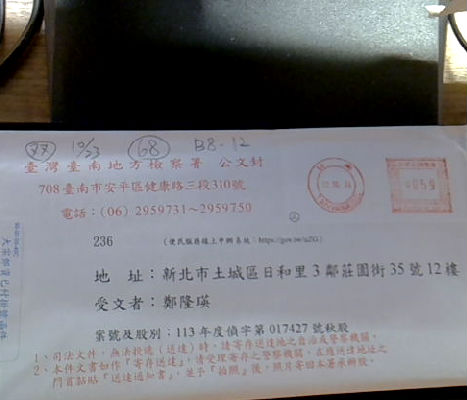 10/23 68 B8-12
臺灣臺南地方檢察署 公文封
708臺南市安平區健康路三段310號
電話：(06) 2959731～2959750
059
236 (便民服務線上申辦系統：https://gov.tw/
地 址：新北市土城區日和里3鄰莊園街35號12樓
受文者：鄭隆瑛
案號及股別：113年度偵字第017427號秋股
1、司法文件，無法投遞（送達）時，請寄存送達地之自治或警察機關。
2、本件文書如作『寄存送達』，請受理寄存之警察機關，在應送達地址之
門首黏貼『送達通知書』，並予『拍照』後，照片寄回本署承辦股。